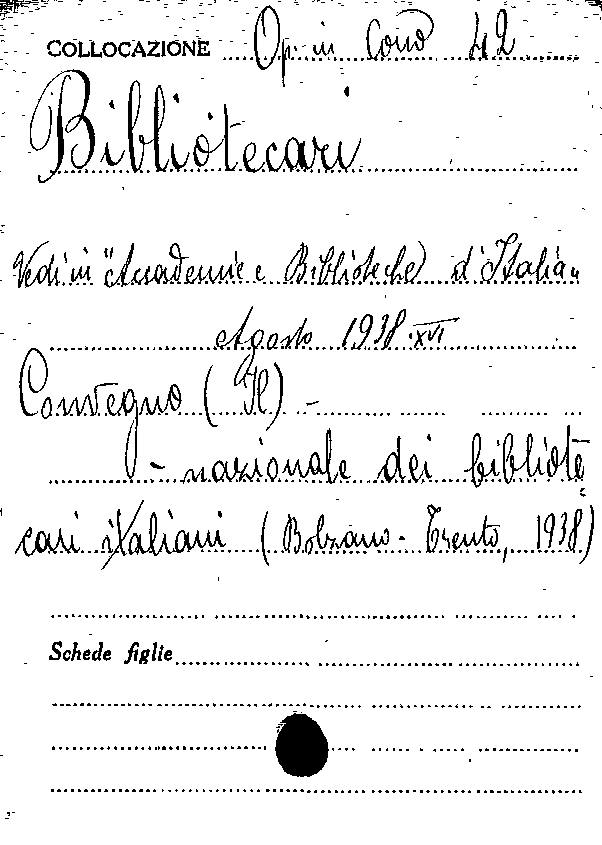 COLLOCAZIONE Op. in Cons 42
Bibliotecari
Vedi in "Accademie e Biblioteche d'Italia"
Agosto 1938.XVI
Convegno (Il) -
- nazionale dei bibliote
cari italiani (Bolzano - Trento, 1938)
Schede figlie